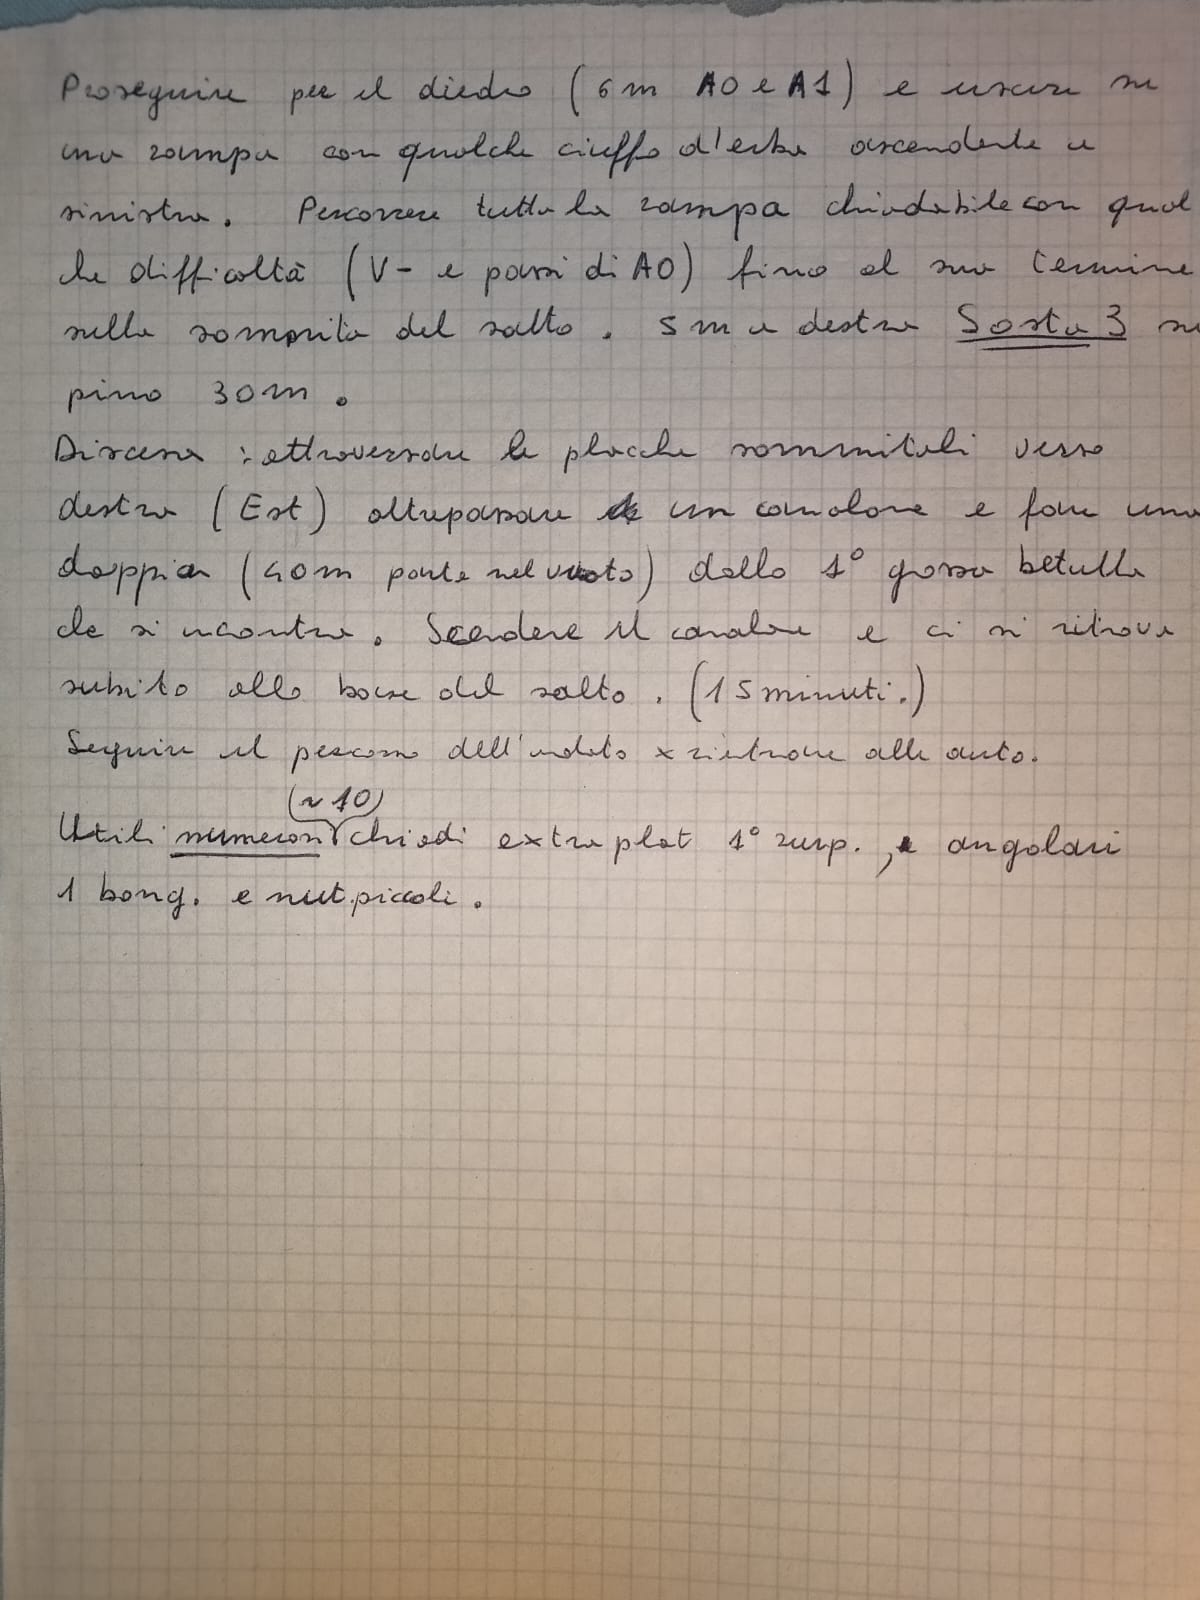 Proseguire per il diedro (6m A0 e A1) e uscire su
una rampa con qualche ciuffo d'erba ascendente a
sinistra. Percorrere tutta la rampa chiodabile con qual
che difficoltà (V- e passi di A0) fino al suo termine
sulla sommità del salto. 5m a destra Sosta 3 su
pino 30m.
Discesa: attraversare le placche sommitali verso
destra (Est) oltrepassare un canalone e fare una
doppia (40m parte nel vuoto) dalla 1° grossa betulla
che si incontra. Scendere il canalone e ci si ritrova
subito alla base del salto. (15 minuti.)
Seguire il percorso dell'andata x rientrare alle auto.
(~10)
Utili numerosi chiodi extra plat 1° rurp., e angolari
1 bong. e nut. piccoli.